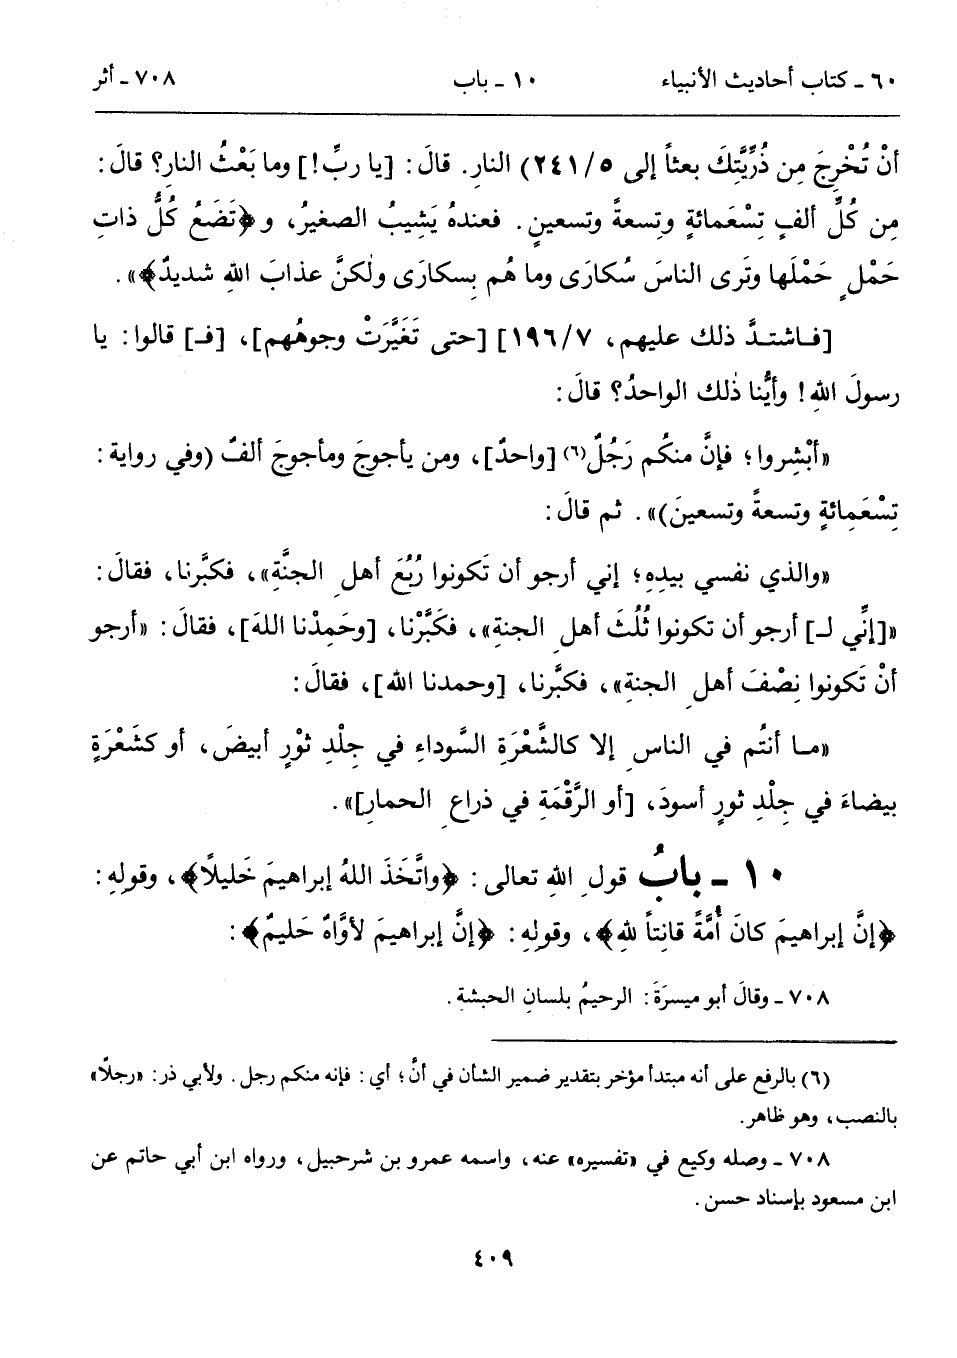 ٦٠ ـ كتاب أحاديث الأنبياء ١٠ ـ باب ٧٠٨ ـ أثر
أنْ تُخْرِجَ مِن ذُرِّيَّتِكَ بعثاً إلى ٢٤١/٥) النارِ. قالَ: [يا ربِّ!] وما بَعْثُ النارِ؟ قالَ:
مِن كُلِّ ألفٍ تِسْعَمائةٍ وتِسعةً وتسعينِ. فعندهُ يَشِيبُ الصغيرُ، و ﴿تَضَعُ كُلُّ ذاتِ
حَمْلٍ حَمْلَها وتَرى الناسَ سُكارَى وما هُم بِسكارَى ولٰكنَّ عذابَ اللهِ شديدٌ﴾».
[فـاشتـدَّ ذلك عليهم، ١٩٦/٧] [حتى تَغَيَّرَتْ وجوهُهم]، [فـ] قالوا: يا
رسولَ اللهِ! وأيُّنا ذٰلك الواحدُ؟ قالَ:
«أبْشِروا؛ فإنَّ منكُم رَجُلٌ(٦) [واحدٌ]، ومن يأجوجَ ومأجوجَ ألفٌ (وفي رواية:
تِسْعَمِائةٍ وتسعةً وتسعينَ)». ثم قالَ:
«والذي نفسي بيدِهِ؛ إني أرجو أن تَكونوا رُبُعَ أهلِ الجنَّةِ»، فكبَّرنا، فقالَ:
«[إنِّي لـ] أرجو أن تكونوا ثُلُثَ أهلِ الجنةِ»، فكَبَّرْنا، [وحَمِدْنا اللهَ]، فقالَ: «أرجو
أنْ تَكونوا نِصْفَ أهلِ الجنةِ»، فكبَّرنا، [وحمدنا الله]، فقالَ:
«مـا أنتُم في الناسِ إلا كالشَّعْرَةِ السَّوداءِ في جِلْدِ ثوْرٍ أبيضَ، أو كشَعْرَةٍ
بيضاءَ في جِلْدِ ثورٍ أسودَ، [أو الرَّقْمَةِ في ذراعِ الحمارِ]».
١٠ ـ بابُ قولِ اللهِ تعالى: ﴿واتَّخَذَ اللهُ إبراهيمَ خَليلًا﴾، وقولِهِ:
﴿إنَّ إبراهيمَ كانَ أُمَّةً قانِتاً للهِ﴾، وقولِه: ﴿إنَّ إبراهيمَ لأوَّاهٌ حَليمٌ﴾:
٧٠٨ ـ وقالَ أبو ميسرَةَ: الرحيمُ بلسانِ الحبشةِ.
(٦) بالرفع على أنه مبتدأ مؤخر بتقدير ضمير الشأن في أنَّ؛ أي: فإنه منكم رجل. ولأبي ذر: «رجلًا»
بالنصب، وهو ظاهر.
٧٠٨ ـ وصله وكيع في «تفسيره» عنه، واسمه عمرو بن شرحبيل، ورواه ابن أبي حاتم عن
ابن مسعود بإسناد حسن.
٤٠٩